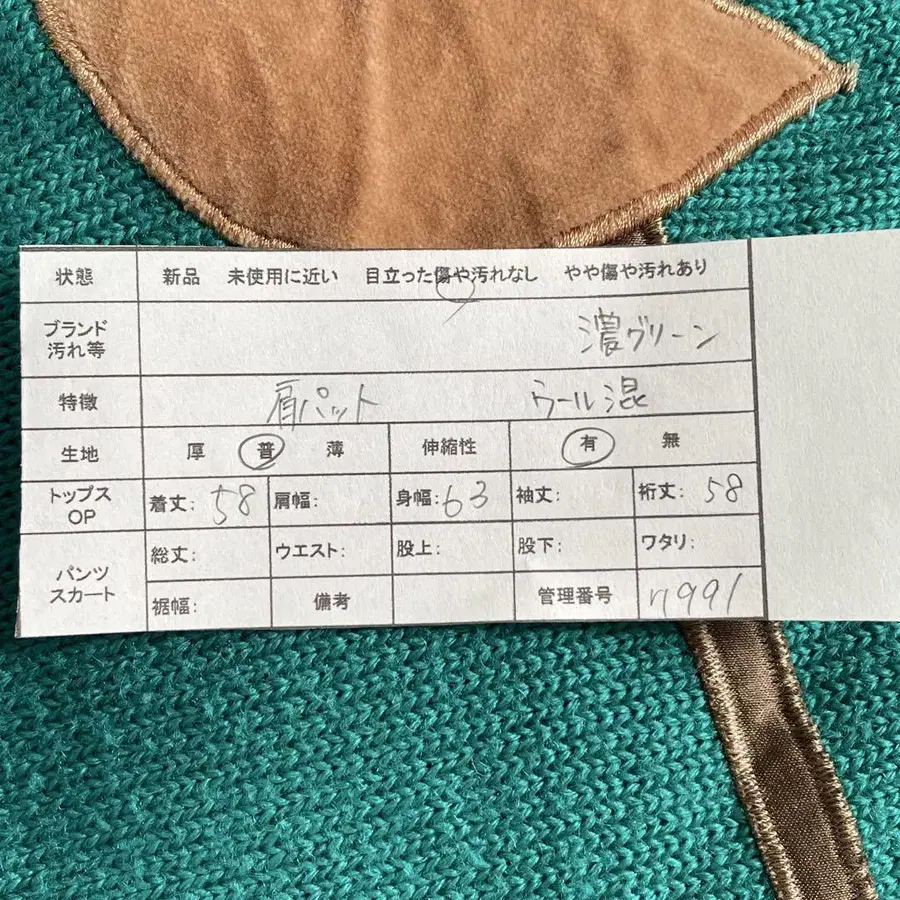 状態 新品 未使用に近い 目立った傷や汚れなし やや傷や汚れあり
ブランド
汚れ等 濃グリーン
特徴 肩パット ウール混
生地 厚 普 薄 伸縮性 有 無
トップス
OP 着丈: 58 肩幅: 身幅: 63 袖丈: 裄丈: 58
パンツ
スカート 総丈: ウエスト: 股上: 股下: ワタリ:
裾幅: 備考 管理番号 7991